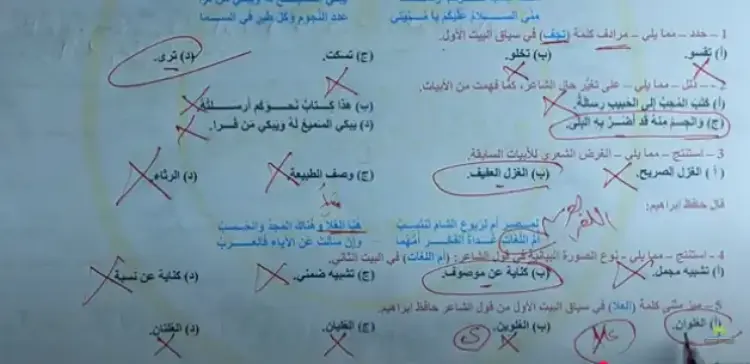 عدد النجوم وكل طير في السما
منى السلام عليكم يا منيتي
1 – حدد – مما يلي – مرادف كلمة (تجف) في سياق البيت الأول.
(أ) تقسو. (ب) تخلو. (ج) تسكت. (د) ترى.
2 – دلل – مما يلي – على تغير حال الشاعر، كما فهمت من الأبيات.
(أ) كتب المحب إلى الحبيب رسالة. (ب) هذا كتاب نحوكم أرسلته
(ج) والجسم منه قد أضر به البلى. (د) يبكي السميع له ويبكي من قرا.
3 – استنتج – مما يلي – الغرض الشعري للأبيات السابقة.
(أ) الغزل الصريح. (ب) الغزل العفيف. (ج) وصف الطبيعة. (د) الرثاء.
قال حافظ إبراهيم:
لمصر أم لربوع الشام تنتسب هنا العلا وهناك المجد والحسب
أم اللغات غداة الفخر أمهما وإن سألت عن الأيام فالعرب
4 – استنتج – مما يلي – نوع الصورة البيانية في قول الشاعر: (أم اللغات) في البيت الثاني.
(أ) تشبيه مجمل. (ب) كناية عن موصوف. (ج) تشبيه ضمني. (د) كناية عن نسبة
5 – ميز مثنى كلمة (العلا) في سياق البيت الأول من قول الشاعر حافظ إبراهيم.
(أ) العلوان. (ب) العلوين. (ج) العليان. (د) العلتان.